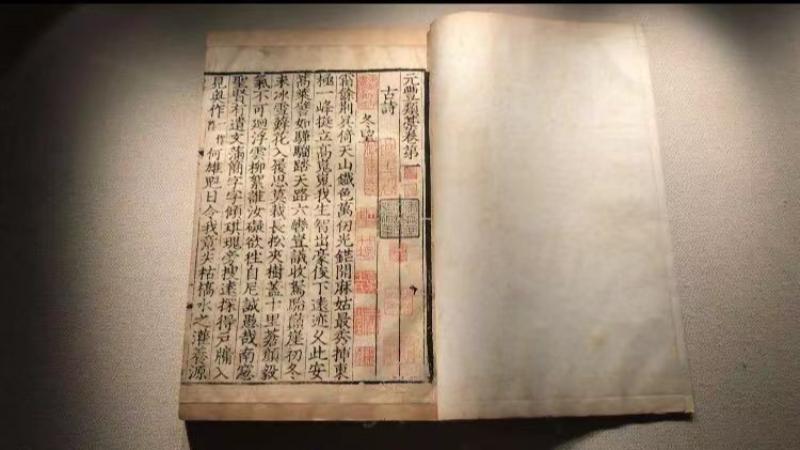 元豐類藁卷第一
古詩
冬望
霜餘荊吳倚天山鐵色萬仞光鋩開麻姑最秀插東
極一峰挺立高嵬嵬我生智出豪俊下遠迹久此安
蒿萊譬如驊騮踏天路六轡豈議收駑駘巔崖初冬
未冰雪蘚花入履思莫裁長松夾樹蓋十里蒼顏毅
氣不可迴浮雲柳絮誰汝礙欲往自尼誠愚哉南窓
聖賢有遺文滿簡字字傾琪瑰旁搜遠探得戶牖入
見奧作何雄魁日令我意失枯槁水之灌養源